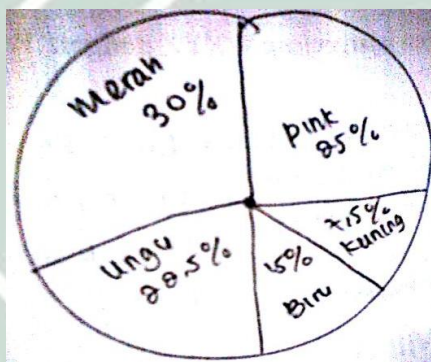 Merah
30%
Pink
25%
7,5%
Kuning
15%
Biru
Ungu
22,5%